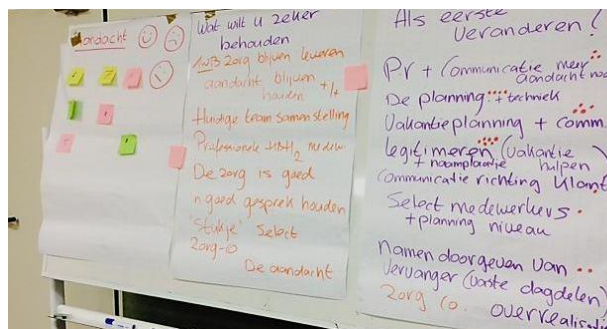 aandacht
Wat wilt u zeker
behouden
zorg blijven leveren
aandacht blijven
houden +/+
Huidige team samenstelling
Professionele HBH2 medew
De zorg is goed
n goed gesprek houden
'Stukje' Select
zorg-io
De aandacht
Als eerste
veranderen!
Pr + Communicatie meer
aandacht no
De planning + techniek
Vakantieplanning + comm.
legitimeren (vakantie
+ naamplaatje hulpen)
Communicatie richting klant
Select medewerkers
+ planning niveau
namen doorgeven van
vervanger (vaste dagdelen)
zorg io
overrealisati